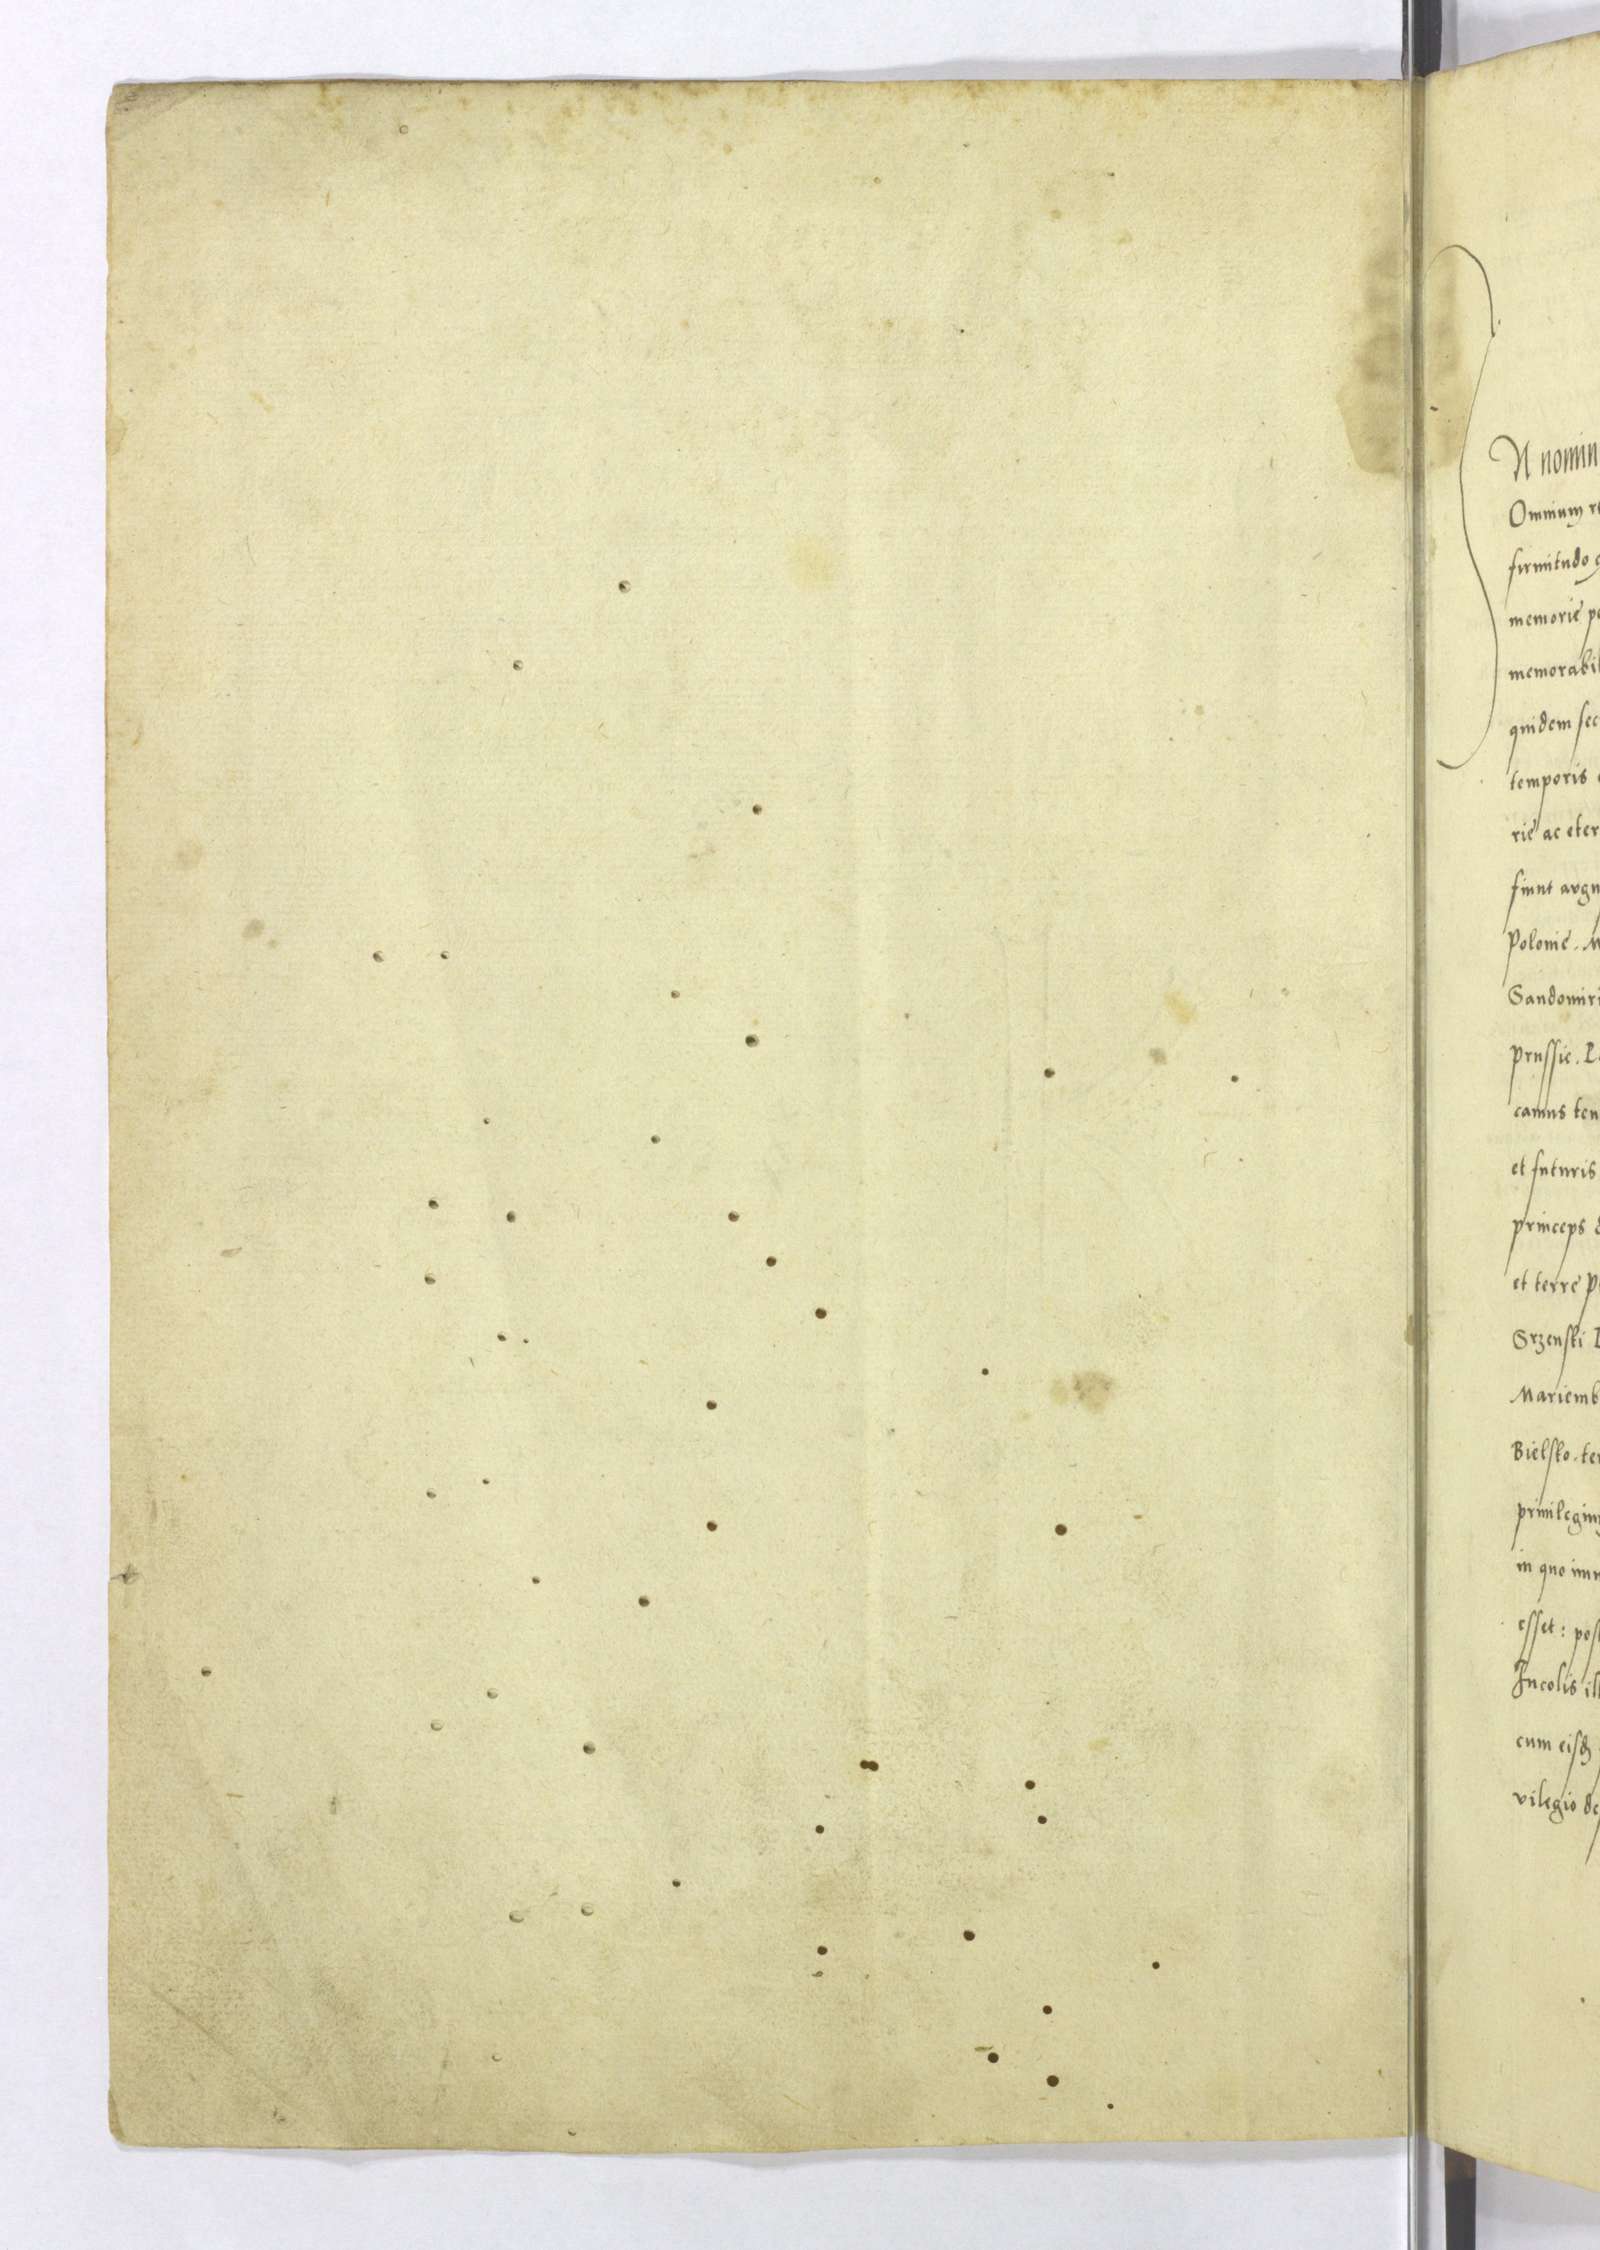 N nomin
Omnium re
firmitudo
memorie
memorabil
quidem sec
temporis
rie ac eter
fiunt argu
Polonie. M
Sandomiri
prussie.
camus ten
et futuris
princeps
et terre
Srzenski
Mariemb
Bielsko. ter
privilegium
in quo imm
esset: post
Incolis ill
cum eisd
vilegio de